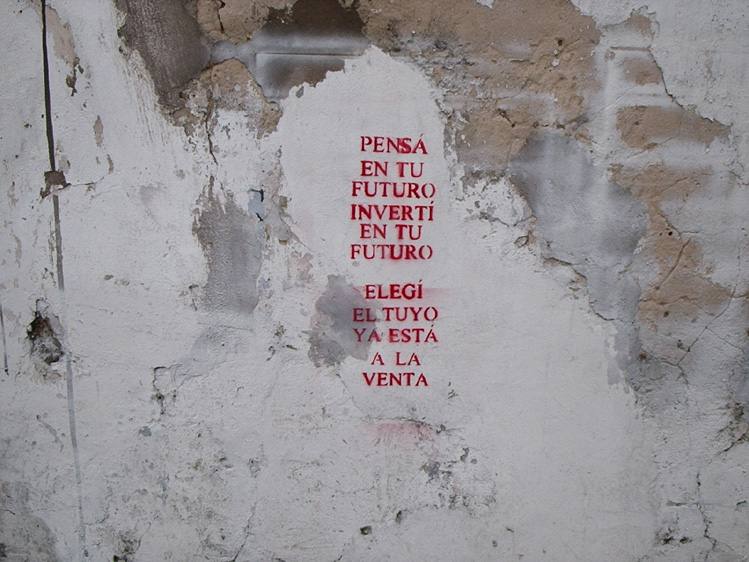 PENSÁ
EN TU
FUTURO
INVERTÍ
EN TU
FUTURO
ELEGÍ
EL TUYO
YA ESTÁ
A LA
VENTA